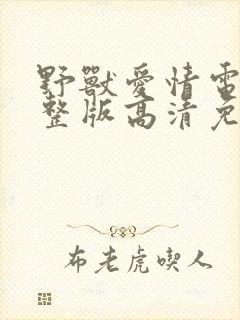 野獸愛情電
整版高清免
布老虎喫人